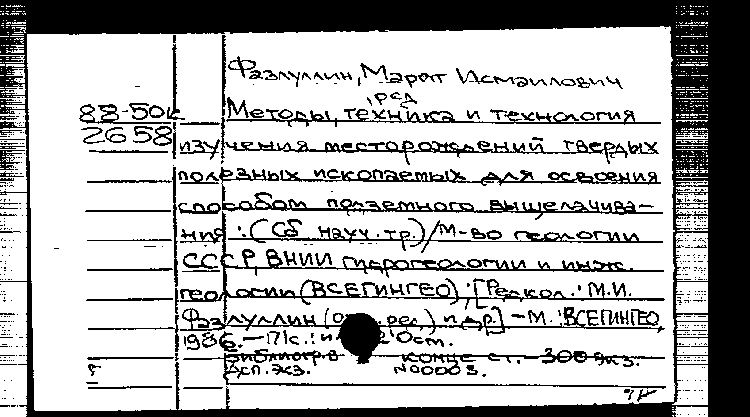 Фазлуллин, Марат Исмаилович
ред
88-50к Методы, техника и технология
2658 изучения месторождений твердых
полезных ископаемых для освоения
способом подземного выщелачива-
ния : (Сб науч. тр.) / М-во геологии
СССР, ВНИИ гидрогеологии и инж.
геологии (ВСЕГИНГЕО); [Редкол.: М.И.
Фазлуллин ( ред.) и др.] - М.: ВСЕГИНГЕО,
1986. -
Библиогр в конце ст. - 300 экз.
Дсп. экз. N00003.